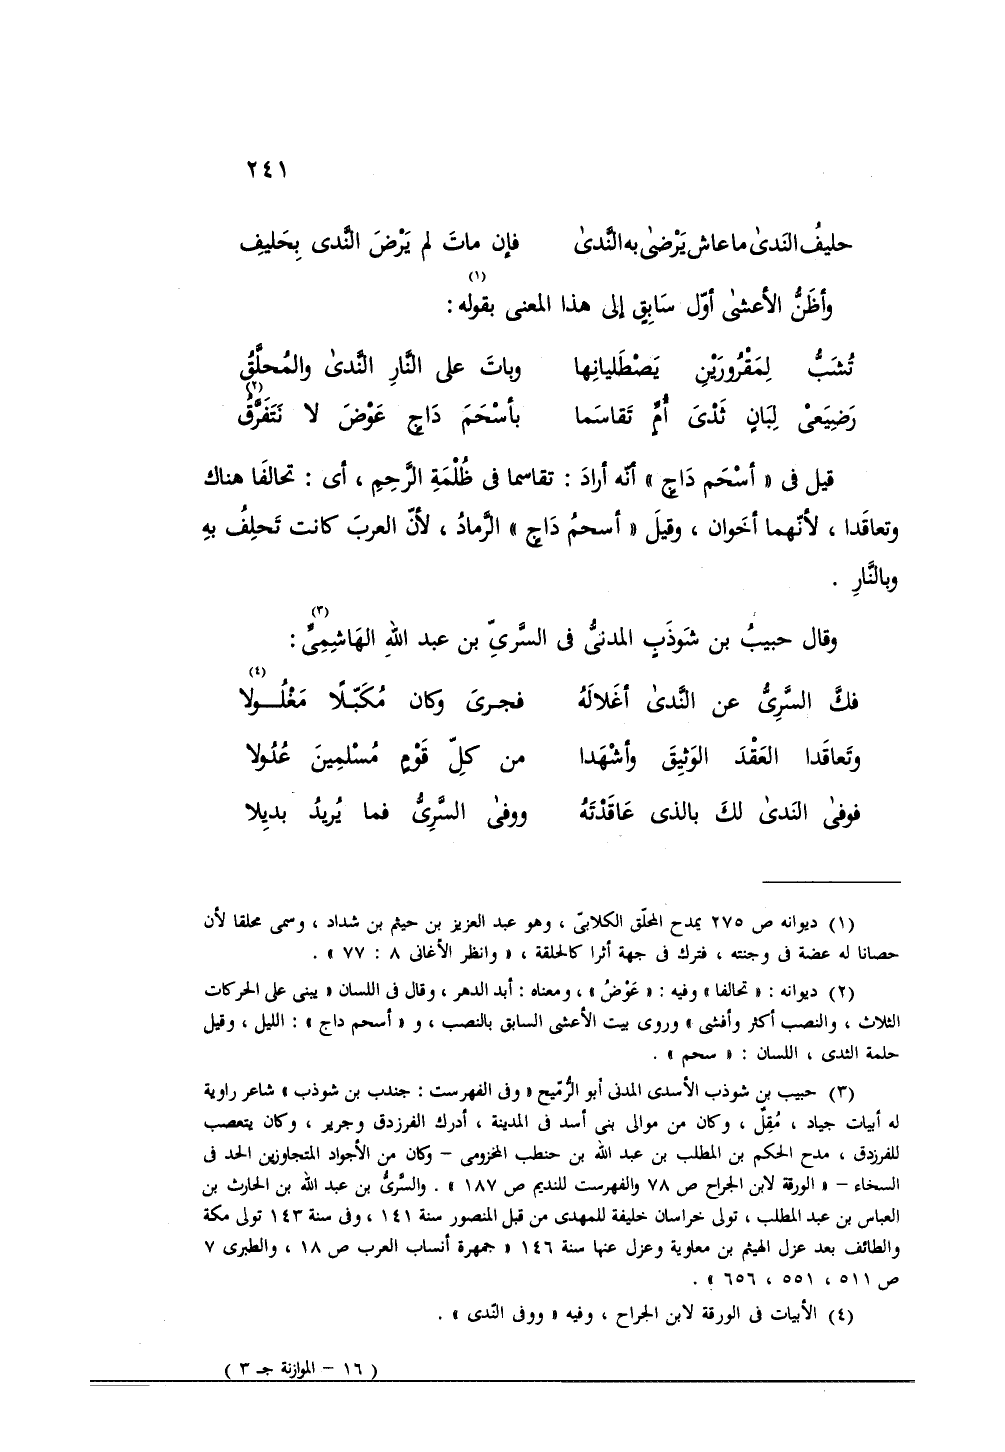 ٢٤١
حليفُ النَدىٰ ما عاش يَرْضىٰ به النَّدىٰ فإن ماتَ لم يَرْضَ النَّدى بِحَليفِ
وأظَنُّ الأعشىٰ أوّل سَابِقٍ إلى هذا المعنى بقوله (١) :
تُشَبُّ لِمَقْرُورَيْنِ يَصْطَليانِها وباتَ على النَّارِ النَّدىٰ والمُحلَّقُ
رَضِيعَىْ لِبَانٍ ثَدْىَ أُمٍّ تَقاسَما بأسْحَمَ دَاجٍ عَوْضَ لا نَتَفَرَّقُ (٢)
قيل فى « أسْحَم دَاجٍ » أنّه أرادَ : تقاسما فى ظُلْمَةِ الرَّحِمِ ، أى : تحالفَا هناك
وتعاقَدا ، لأنّهما أخَوان ، وقيلَ « أسحمُ دَاجٍ » الرَّمادُ ، لأنّ العربَ كانت تَحلِفُ بهِ
وبالنَّارِ .
وقال حبيبُ بن شَوذَبٍ المدنىُّ فى السَّرىِّ بن عبد اللهِ الهَاشِمِىِّ (٣) :
فكَّ السَّرِىُّ عن النَّدىٰ أغَلالَهُ فجرىَ وكان مُكَبّلًا مَغْلُـــولا (٤)
وتَعاقَدا العَقْدَ الوَثِيقَ وأشْهَدا من كلّ قَوْمٍ مُسْلمِينَ عُدُولا
فوفىٰ النَدىٰ لكَ بالذى عَاقَدْتَهُ ووفىٰ السَّرِىُّ فما يُرِيدُ بديِلا
(١) ديوانه ص ٢٧٥ يمدح المحلّق الكلابىّ ، وهو عبد العزيز بن حيثم بن شداد ، وسمى محلقا لأن
حصانا له عضة فى وجنته ، فترك فى جهة أثرا كالحلقة ، « وانظر الأغانى ٨ : ٧٧ » .
(٢) ديوانه : « تحالفا » وفيه : « عَوْضُ » ، ومعناه : أبد الدهر ، وقال فى اللسان « يبنى على الحركات
الثلاث ، والنصب أكثر وأفشى » وروى بيت الأعشى السابق بالنصب ، و « أسحم داج » : الليل ، وقيل
حلمة الثدى ، اللسان : « سحم » .
(٣) حبيب بن شوذب الأسدى المدنى أبو الرُّميح « وفى الفهرست : جندب بن شوذب » شاعر راوية
له أبيات جياد ، مُقِلّ ، وكان من موالى بنى أسد فى المدينة ، أدرك الفرزدق وجرير ، وكان يتعصب
للفرزدق ، مدح الحكم بن المطلب بن عبد الله بن حنطب المخزومى – وكان من الأجواد المتجاوزين الحد فى
السخاء – « الورقة لابن الجراح ص ٧٨ والفهرست للنديم ص ١٨٧ » . والسَّرىُّ بن عبد الله بن الحارث بن
العباس بن عبد المطلب ، تولى خراسان خليفة للمهدى من قبل المنصور سنة ١٤١ ، وفى سنة ١٤٣ تولى مكة
والطائف بعد عزل الهيثم بن معاوية وعزل عنها سنة ١٤٦ « جمهرة أنساب العرب ص ١٨ ، والطبرى ٧
ص ٥١١ ، ٥٥١ ، ٦٥٦ » .
(٤) الأبيات فى الورقة لابن الجراح ، وفيه « ووفى النّدى » .
( ١٦ – الموازنة جـ ٣ )